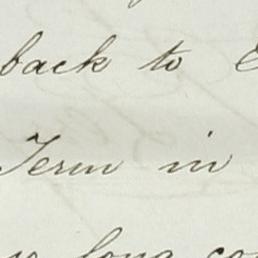 back to
Term in
long